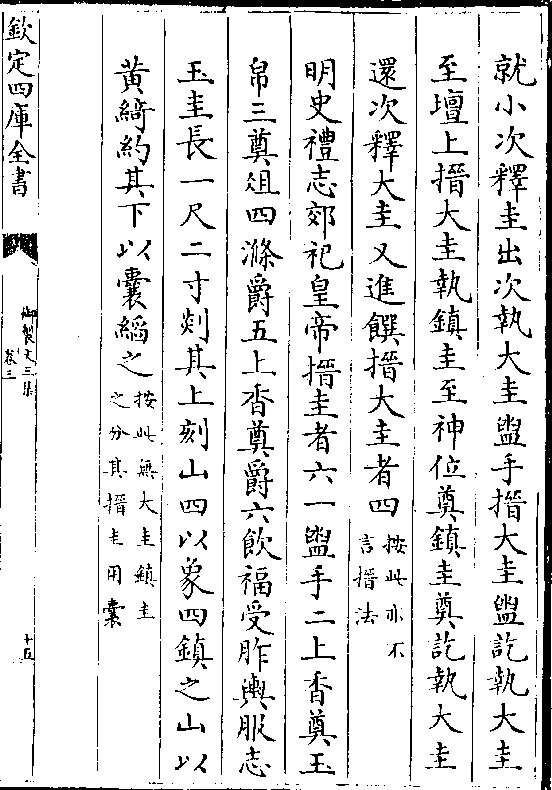 就小次釋圭出次執大圭盥手搢大圭盥訖執大圭
至壇上搢大圭執鎮圭至神位奠鎮圭奠訖執大圭
還次釋大圭又進饌搢大圭者四按此亦不
言搢法
明史禮志郊祀皇帝搢圭者六一盥手二上香奠玉
帛三奠俎四滌爵五上香奠爵六飲福受胙輿服志
玉圭長一尺二寸剡其上刻山四以象四鎮之山以
黄綺約其下以囊縚之按此無大圭鎮圭
之分其搢圭用囊
欽定四庫全書
御製文三集
卷三
十五